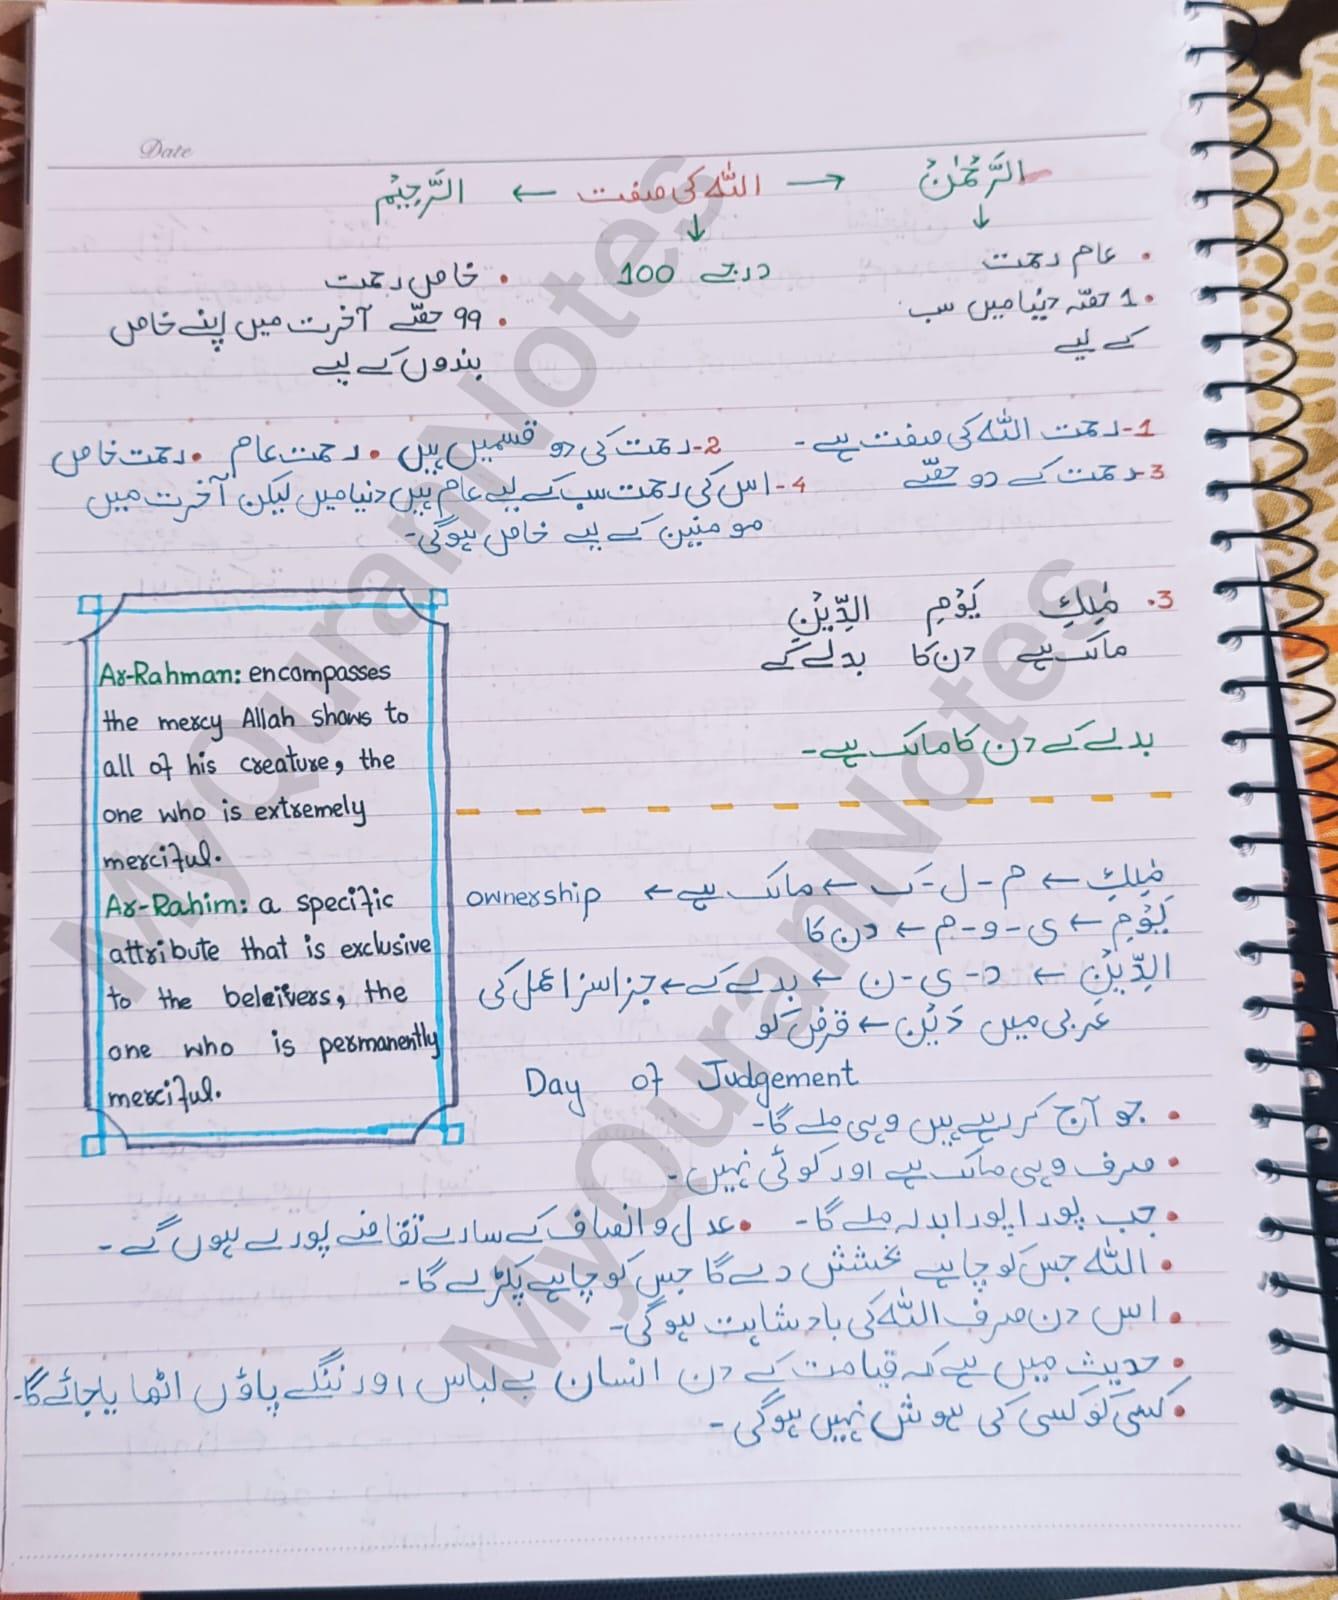 Date
الرَّحْمٰنُ ← اللہ کی صفت → الرَّحِیْمُ
↓ ↓
درجے 100
• عام رحمت
• 1 حصّہ دنیا میں سب
کے لیے
• خاص رحمت
• 99 حصّے آخرت میں اپنے خاص
بندوں کے لیے
1- رحمت اللہ کی صفت ہے۔ 2- رحمت کی دو قسمیں ہیں • رحمت عام • رحمت خاص
3- رحمت کے دو حصّے 4- اس کی رحمت سب کے لیے عام ہیں دنیا میں لیکن آخرت میں
مومنین کے لیے خاص ہوگی۔
3. مٰلِكِ یَوْمِ الدِّیْنِ
مالک ہے دن کا بدلے کے
بدلے کے دن کا مالک ہے۔
Ar-Rahman: encompasses
the mercy Allah shows to
all of his creature, the
one who is extremely
merciful.
Ar-Rahim: a specific
attribute that is exclusive
to the beleivers, the
one who is permanently
merciful.
مٰلِكِ ← م - ل - ک ← مالک ہے ← ownership
یَوْمِ ← ی - و - م ← دن کا
الدِّیْنِ ← د - ی - ن ← بدلے کے ← جزا سزا عمل کی
عربی میں دَیْن ← قرض کو
Day of Judgement
• جو آج کر رہے ہیں وہی ملے گا۔
• صرف وہی مالک ہے اور کوئی نہیں۔
• جب پورا پورا بدلہ ملے گا۔ • عدل و انصاف کے سارے تقاضے پورے ہوں گے۔
• اللہ جس کو چاہے بخشش دے گا جس کو چاہے پکڑ لے گا۔
• اس دن صرف اللہ کی بادشاہت ہوگی۔
• حدیث میں ہے کہ قیامت کے دن انسان بے لباس اور ننگے پاؤں اٹھایا جائے گا۔
• کسی کو کسی کی ہوش نہیں ہوگی۔
MyQuranNotes
MyQuranNotes